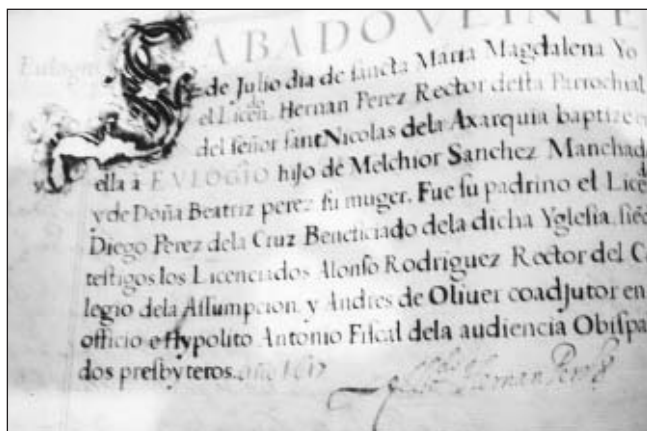 SABADO VEINTE
de Julio dia de sancta Maria Magdalena Yo
el Licen.do Hernan Perez Rector desta Parrochial
del señor sant Nicolas dela Axarquia baptize en
ella a EVLOGIO hijo de Melchior Sanchez Manchad
y de Doña Beatriz perez su muger. Fue su padrino el Lice
Diego Perez dela Cruz Beneficiado dela dicha Yglesia. sie
testigos los Licenciados Alonso Rodriguez Rector del C
legio dela Assumpcion y Andres de Oliuer coadjutor en
officio e Hypolito Antonio Fiscal dela audiencia Obispa
dos presbyteros. año 1617
Hernan Perez